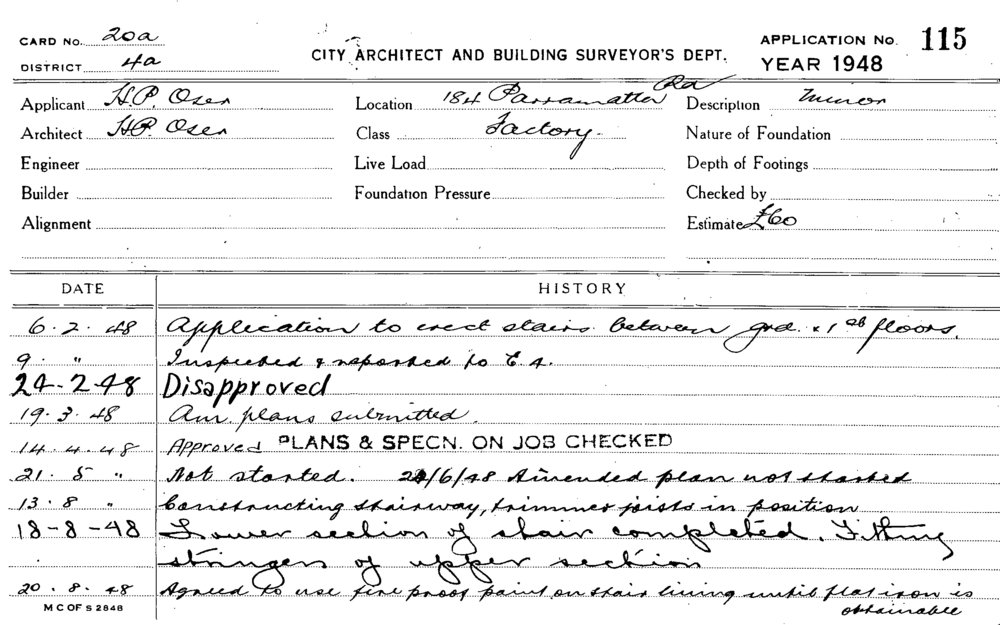 CARD No. 20a
DISTRICT 4a
CITY ARCHITECT AND BUILDING SURVEYOR'S DEPT.
APPLICATION No. 115
YEAR 1948
Applicant H.P. Oser Location 184 Parramatta Rd Description Minor
Architect H.P. Oser Class Factory. Nature of Foundation
Engineer Live Load Depth of Footings
Builder Foundation Pressure Checked by
Alignment Estimate £60
DATE HISTORY
6.2.48 Application to erect stairs between grd. & 1st floors.
9. " Inspected & reported to C.A.
24-2-48 Disapproved
19.3.48 Am. plans submitted
14.4.48 Approved PLANS & SPECN. ON JOB CHECKED
21.5 " Not started. /6/48 Amended plan not started
13.8 " Constructing stairway, trimmer joists in position
18-8-48 Lower section of stair completed. Fitting
stringers of upper section
20.8.48 Agreed to use fire proof paint on stair lining until flat iron is
obtainable
M C OF S 2848